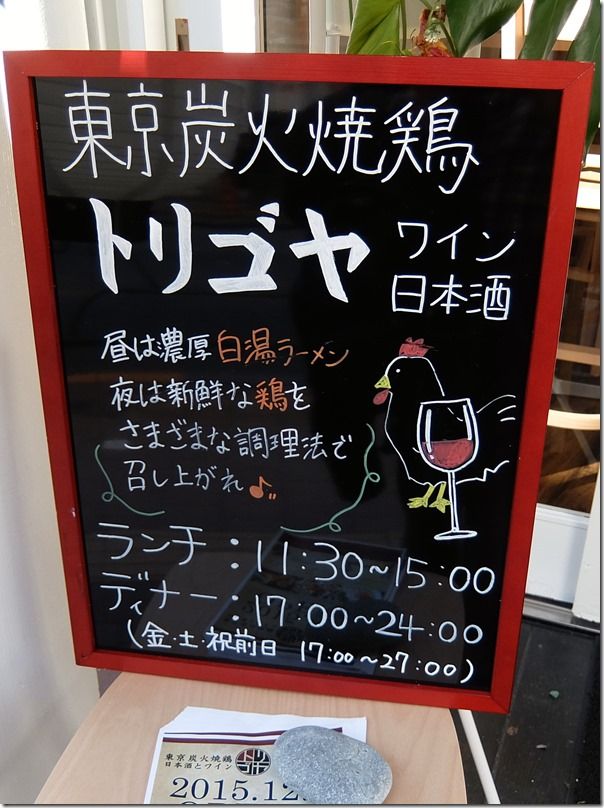 東京炭火焼鶏
トリゴヤ
ワイン
日本酒
昼は濃厚白湯ラーメン
夜は新鮮な鶏を
さまざまな調理法で
召し上がれ♪
ランチ：11:30~15:00
ディナー：17:00~24:00
（金・土・祝前日 17:00~27:00）
東京炭火焼鶏
日本酒とワイン
トリ
ゴヤ
2015.12